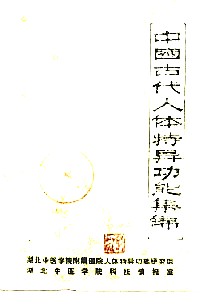 中国古代人体特异功能集编
湖北中医学院附属医院人体特异功能研究室
湖北中医学院科技情报室